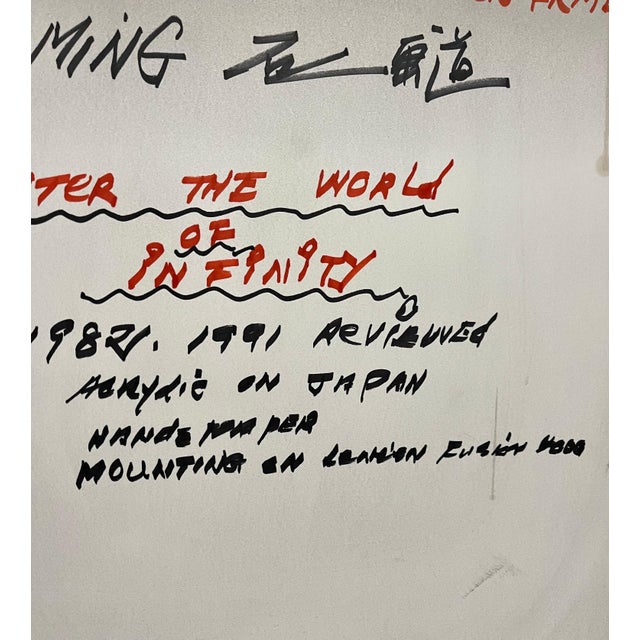 ON FRME
MING 石
STER THE WORLd
OF
INFINITY
1982, 1991 REVIEUVED
ACRYLIC ON JAPAN
HANDE PAPER
MOUNTING ON FUSION